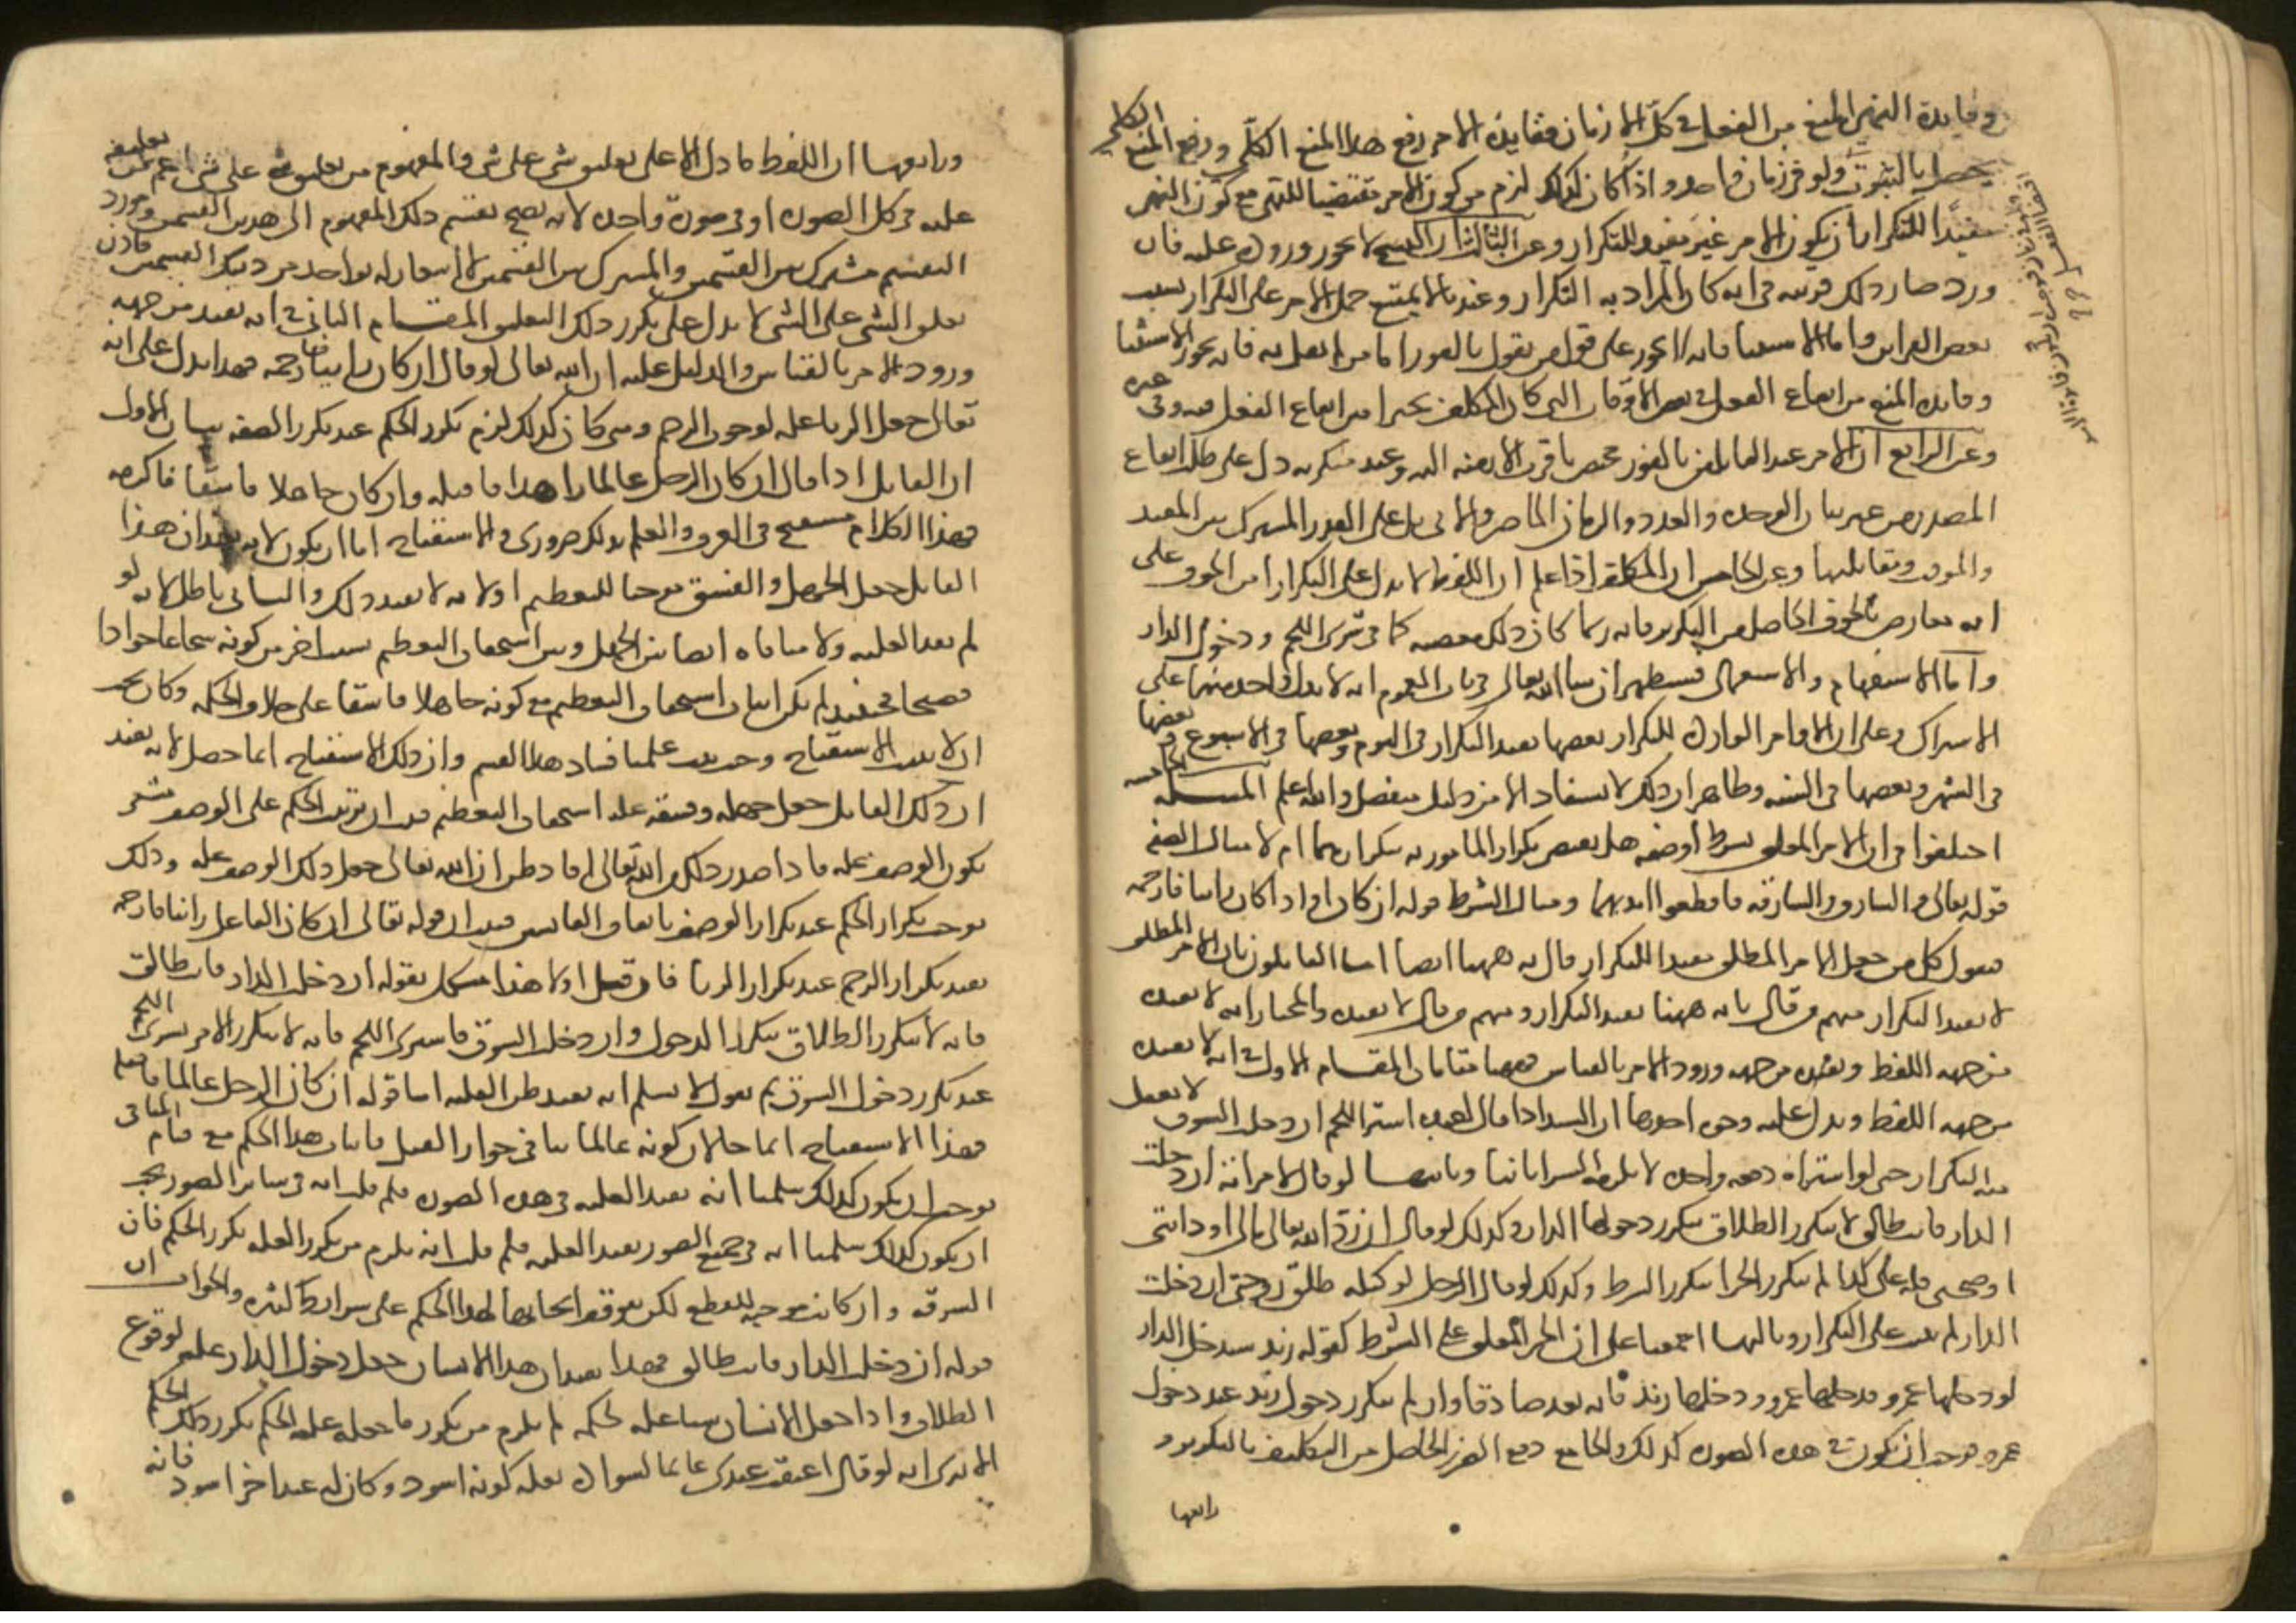 وفايدة النهى المنع من الفعل في كل الازمان ففايدة الامر رفع هذا المنع الكلي ورفع المنع الكلي
يحصل بالثبوت ولو في زمان واحد واذا كان كذلك لزم من كون الامر مقتضيا للنهى مع كون النهى
مفيدا للتكرار ان يكون الامر غير مفيد للتكرار وعن الثالث ان النسخ لا يجوز وروده عليه فان
ورد صار ذلك قرينه في انه كان المراد به التكرار وعندنا لا يمتنع حمل الامر على التكرار بسبب
بعض القراين واما الاستثنا فانه لا يجوز على قول من يقول بالفور اما من لم يقل به فانه يجوز الاستثنا
وفايده المنع من ايقاع الفعل في بعض الاوقات التي كان المكلف مخيرا من ايقاع الفعل فيه وفي غيره
وعن الرابع ان الامر عند القايلين بالفور مختص باقرب الازمنه اليه وعند منكريه دل على طلب ايقاع
المصدر من غير بيان الوحده والعدد والزمان الحاضر والاتي بل على القدر المشترك بين المقيد
والموقت ومقابليهما وعن الخامس ان المكلف اذا علم ان اللفظ لا يدل على التكرار امن الخوف على
انه معارض بالخوف الحاصل من التكرير فانه ربما كان ذلك معصيه كما في شرى اللحم ودخول الدار
واما الاستفهام والاستعمال فسيظهر ان شا الله تعالى في باب العموم انه لا يدل واحد منهما على
الاشتراك وعلى ان الاوامر الوارده للتكرار بعضها يفيد التكرار في اليوم وبعضها في الاسبوع وبعضها
في الشهر وبعضها في السنه وظاهر ان ذلك لا يستفاد الا من دليل منفصل والله اعلم المسله الخامسه
اختلفوا في ان الامر المعلق بشرط او صفه هل يقتضى تكرار المامور به بتكرارهما ام لا مثال الصفه
قوله تعالى والسارق والسارقه فاقطعوا ايديهما ومثال الشرط قوله ان كان او اذا كان زانيا فارجمه
فنقول كل من جعل الامر المطلق مفيدا للتكرار قال به ههنا ايضا اما القايلون بان الامر المطلق
لا يفيد التكرار منهم من قال بانه ههنا يفيد التكرار ومنهم من قال لا يفيده والمختار انه لا يفيده
من جهه اللفظ ويفيده من جهه ورود الامر بالقياس فههنا مقامان المقام الاول في انه لا يفيده
من جهه اللفظ ويدل عليه وجوه احدها ان السيد اذا قال لعبده اشتر اللحم ان دخلت السوق لا يعقل
منه التكرار حتى لو اشتراه دفعه واحده لا يلزمه الشرا ثانيا وثانيها لو قال لامراته ان دخلت
الدار فانت طالق لا يتكرر الطلاق بتكرر دخولها الدار وكذلك لو قال ان رد الله تعالى مالي او دابتي
او صحتي فله على كذا لم يتكرر الجزا بتكرر الشرط وكذلك لو قال الرجل لوكيله طلق زوجتي ان دخلت
الدار لم يثبت على التكرار وثالثها اجمعنا على ان الخبر المعلق على الشرط كقوله زيد سيدخل الدار
لو دخلها عمرو فدخلها عمرو ودخلها زيد فانه يعد صادقا وان لم يتكرر دخول زيد عند دخول
عمرو فوجب ان يكون في هذه الصوره كذلك والجامع دفع الضرر الحاصل من التكليف بالتكرير و
رابعها
ورابعها ان اللفظ ما دل الا على تعليق شى على شى والمفهوم من تعليق شى على شى اعم من تعليقه
عليه في كل الصور او في صورة واحده لانه يصح تقسيم ذلك المفهوم الى هذين القسمين ومورد
التقسيم مشترك بين القسمين والمشترك بين القسمين لا اشعار له بواحد من ذينك القسمين فاذن
تعليق الشى على الشى لا يدل على تكرر ذلك التعليق المقام الثاني في انه يفيد من جهه
ورود الامر بالقياس والدليل عليه ان الله تعالى لو قال ان كان زانيا فارجمه فهذا يدل على انه
تعالى جعل الزنا عله لوجوب الرجم ومتى كان كذلك لزم تكرر الحكم عند تكرر الصفه بيان الاول
ان القايل اذا قال ان كان الرجل عالما زاهدا فاقتله وان كان جاهلا فاسقا فاكرمه
فهذا الكلام مستقبح في العرف والعلم بذلك ضروري والاستقباح اما ان يكون لانه يفيد ان هذا
القايل جعل الجهل والفسق موجبا للتعظيم اولا لانه لا يفيد ذلك والثاني باطل لانه لو
لم يفد العليه ولا منافاه ايضا بين الجهل وبين استحقاق التعظيم بسبب اخر من كونه شجاعا جوادا
فصيحا فحينئذ لم يكن اثبات استحقاق التعظيم مع كونه جاهلا فاسقا على خلاف الحكمه وكان يجب
ان لا يثبت الاستقباح وحيث ثبت علمنا فساد هذا القسم وان ذلك الاستقباح انما حصل لانه يفيد
ان ذلك القايل جعل جهله وفسقه عله استحقاق التعظيم فثبت ان ترتيب الحكم على الوصف مشعر
بكون الوصف عله فاذا صدر ذلك من الله تعالى افاد ظن ان الله تعالى جعل ذلك الوصف عله وذلك
يوجب تكرار الحكم عند تكرار الوصف باتفاق القايسين فثبت ان قوله تعالى ان كان الفاعل زانيا فارجمه
يفيد تكرار الرجم عند تكرار الزنا فان قيل اولا هذا مشكل بقوله ان دخلت الدار فانت طالق
فانه لا يتكرر الطلاق بتكرر الدخول وان دخلت السوق فاشتر اللحم فانه لا يتكرر الامر بشرى اللحم
عند تكرر دخول السوق ثم نقول لا نسلم انه يفيد ظن العليه اما قوله ان كان الرجل عالما فاقتله
فهذا الاستقباح انما جا لان كونه عالما ينافي جواز القتل فاثبات هذا الحكم مع قيام المنافي
يوجب ان يكون كذلك سلمنا انه يفيد العليه في هذه الصوره فلم قلت انه في ساير الصور يجب
ان يكون كذلك سلمنا انه في جميع الصور يفيد العليه فلم قلت انه يلزم من تكرر العله تكرر الحكم فان
السرقه وان كانت موجبه للقطع لكن يتوقف ايجابها لهذا الحكم على شرايط كثيره والجواب ان
قوله ان دخلت الدار فانت طالق فهذا يفيد ان هذا الانسان جعل دخول الدار عله لوقوع
الطلاق واذا جعل الانسان شيا عله لحكمه لم يلزم من تكرر ما جعله عله الحكم تكرر ذلك الحكم
الا ترى انه لو قال اعتقت عبدى غانما لسواده بعله كونه اسود وكان له عبد اخر اسود فانه